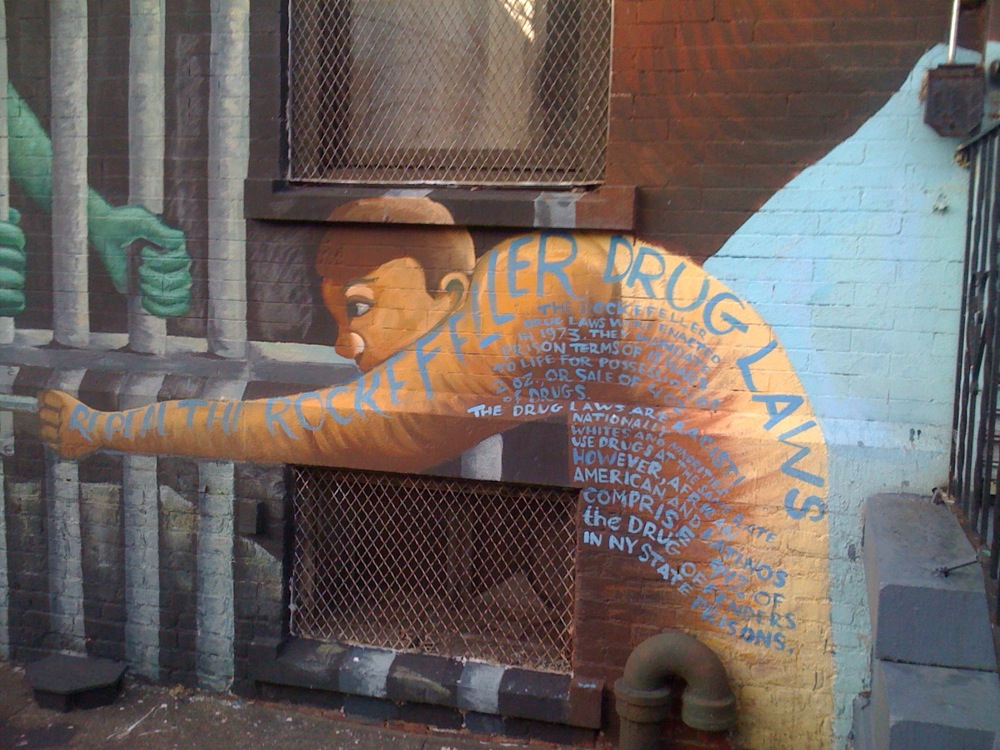 REPEAL THE ROCKEFELLER DRUG LAWS
THE ROCKEFELLER
DRUG LAWS WERE ENACTED
IN 1973. THE MANDATE
PRISON TERMS OF 15 YEARS
TO LIFE FOR POSSESSION OF
OZ., OR SALE OF
OF DRUGS.
THE DRUG LAWS ARE RACIST!
NATIONALLY
WHITES AND
USE DRUGS AT THE SAME RATE
HOWEVER, AFRICAN
AMERICAN AND LATINOS
COMPRISE OF
the DRUG OFFENDERS
IN NY STATE PRISONS.